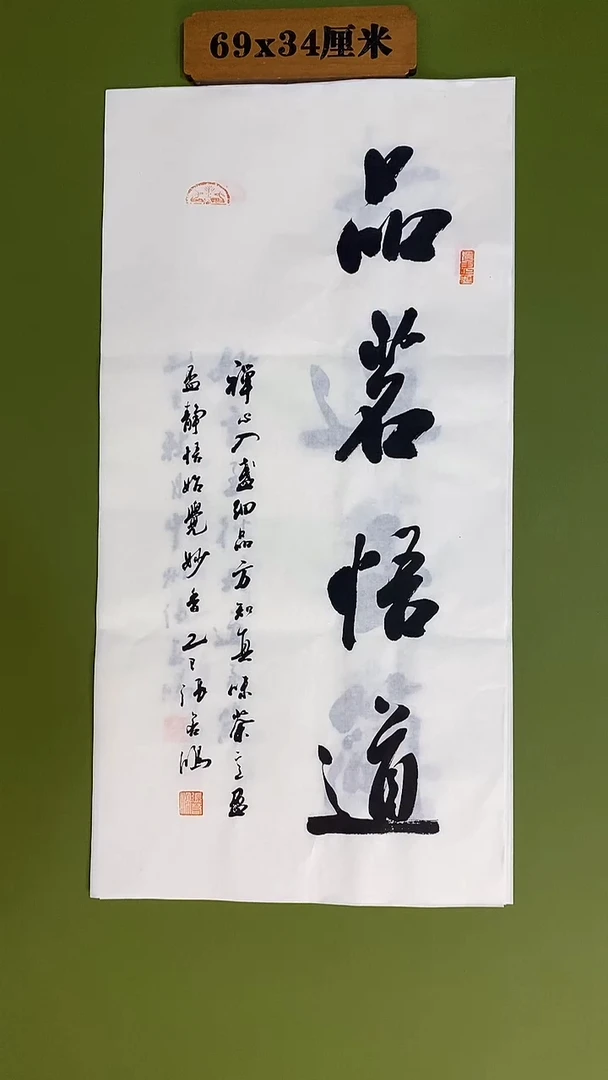 69x34厘米
品茗悟道
禅心入盏细品方知真味茶意盈
盈静悟始觉妙香乙巳张若鸿